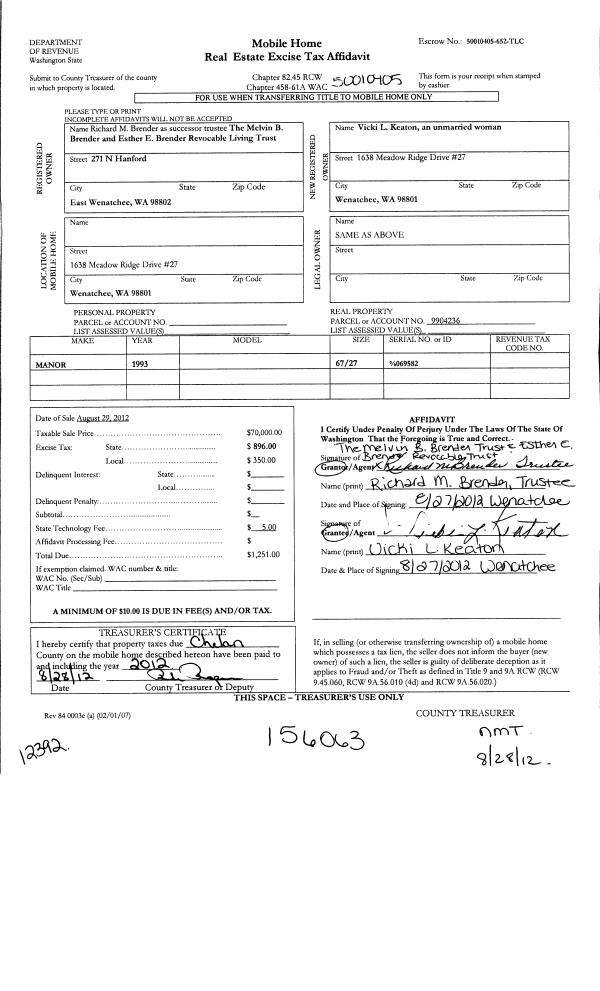 DEPARTMENT
OF REVENUE
Washington State
Mobile Home
Real Estate Excise Tax Affidavit
Escrow No.: 50010405-652-TLC
Submit to County Treasurer of the county
in which property is located.
Chapter 82.45 RCW
Chapter 458-61A WAC
50010405
This form is your receipt when stamped
by cashier
FOR USE WHEN TRANSFERRING TITLE TO MOBILE HOME ONLY
PLEASE TYPE OR PRINT
INCOMPLETE AFFIDAVITS WILL NOT BE ACCEPTED
REGISTERED
OWNER
Name Richard M. Brender as successor trustee The Melvin B.
Brender and Esther E. Brender Revocable Living Trust
Street 271 N Hanford
City State Zip Code
East Wenatchee, WA 98802
NEW REGISTERED
OWNER
Name Vicki L. Keaton, an unmarried woman
Street 1638 Meadow Ridge Drive #27
City State Zip Code
Wenatchee, WA 98801
LOCATION OF
MOBILE HOME
Name
Street
1638 Meadow Ridge Drive #27
City State Zip Code
Wenatchee, WA 98801
LEGAL OWNER
Name
SAME AS ABOVE
Street
City State Zip Code
PERSONAL PROPERTY
PARCEL or ACCOUNT NO.
LIST ASSESSED VALUE(S)
REAL PROPERTY
PARCEL or ACCOUNT NO. 9904236
LIST ASSESSED VALUE(S)
MAKE YEAR MODEL SIZE SERIAL NO. or ID REVENUE TAX
CODE NO.
MANOR 1993 67/27 %069582
Date of Sale August 29, 2012
Taxable Sale Price $70,000.00
Excise Tax: State $ 896.00
Local $ 350.00
Delinquent Interest: State $
Local $
Delinquent Penalty: $
Subtotal $
State Technology Fee $ 5.00
Affidavit Processing Fee $
Total Due $1,251.00
If exemption claimed. WAC number & title:
WAC No. (Sec/Sub)
WAC Title
A MINIMUM OF $10.00 IS DUE IN FEE(S) AND/OR TAX.
AFFIDAVIT
I Certify Under Penalty Of Perjury Under The Laws Of The State Of
Washington That the Foregoing is True and Correct.
The Melvin B. Brender Trust & Esther E.
Signature of Brender Revocable Trust
Grantor/Agent Richard M Brender Trustee
Name (print) Richard M. Brender, Trustee
Date and Place of Signing: 8/27/2012 Wenatchee
Signature of
Grantee/Agent Vicki L Keaton
Name (print) Vicki L. Keaton
Date & Place of Signing 8/27/2012 Wenatchee
TREASURER'S CERTIFICATE
I hereby certify that property taxes due Chelan
County on the mobile home described hereon have been paid to
and including the year 2012
8/28/12
Date County Treasurer or Deputy
If, in selling (or otherwise transferring ownership of) a mobile home
which possesses a tax lien, the seller does not inform the buyer (new
owner) of such a lien, the seller is guilty of deliberate deception as it
applies to Fraud and/or Theft as defined in Title 9 and 9A RCW (RCW
9.45.060, RCW 9A.56.010 (4d) and RCW 9A.56.020.)
THIS SPACE – TREASURER'S USE ONLY
Rev 84 0003e (a) (02/01/07)
COUNTY TREASURER
12392.
156063
nmt
8/28/12.